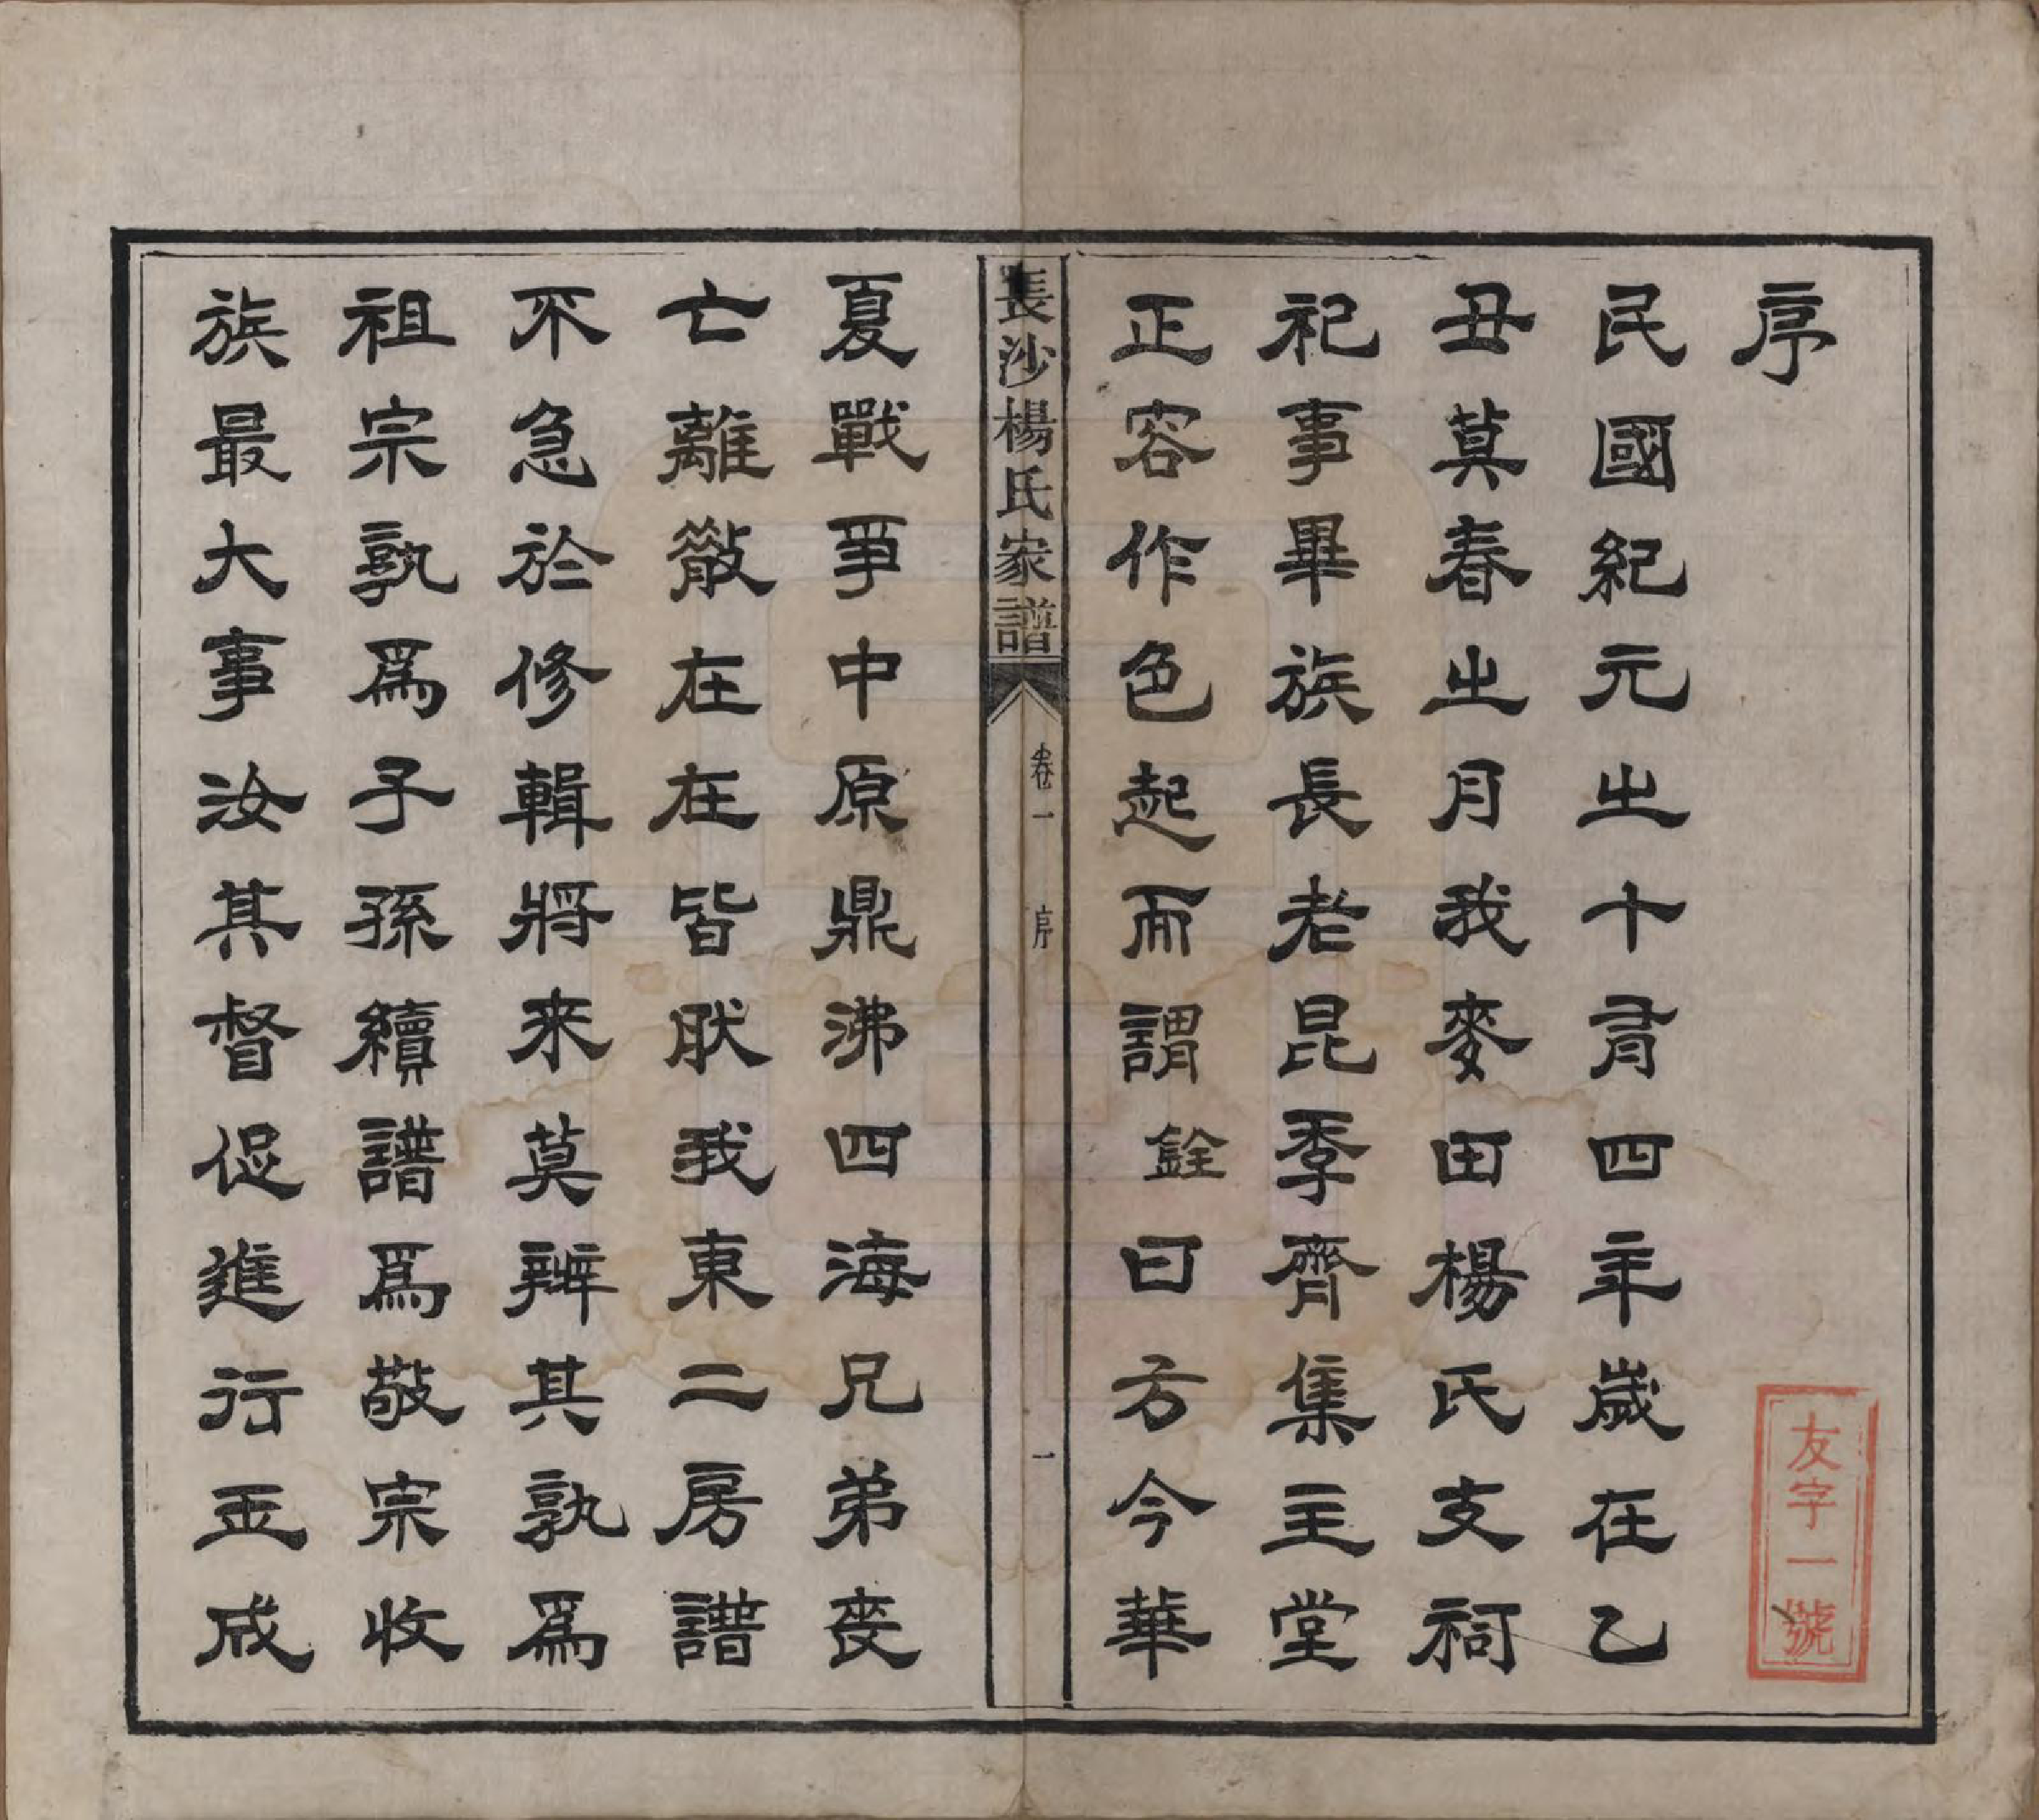 序
民國紀元㞢十有四年歲在乙
丑莫春㞢月我麥田楊氏支祠
祀事畢族長老昆季齊集主堂
正容作色起而謂銓曰方今華
長沙楊氏家譜
卷一
序
一
夏戰爭中原鼎沸四海兄弟喪
亡離散在在皆肰我東二房譜
不急於修輯將來莫辨其孰爲
祖宗孰爲子孫續譜爲敬宗收
族最大事汝其督促進行玉成
友字一號